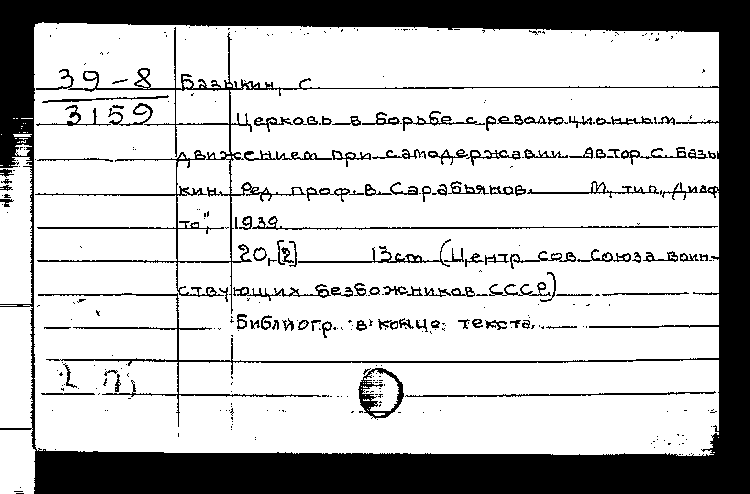 39-8
3159
Базыкин, С.
Церковь в борьбе с революционным
движением при самодержавии. Автор С. Базы
кин. Ред. проф. В. Сарабьянов. М, тип. „Диаф
то", 1939.
20, [2] 13 cm (Центр сов. Союза воин-
ствующих безбожников СССР)
Библиогр. в конце текста.
2 п,